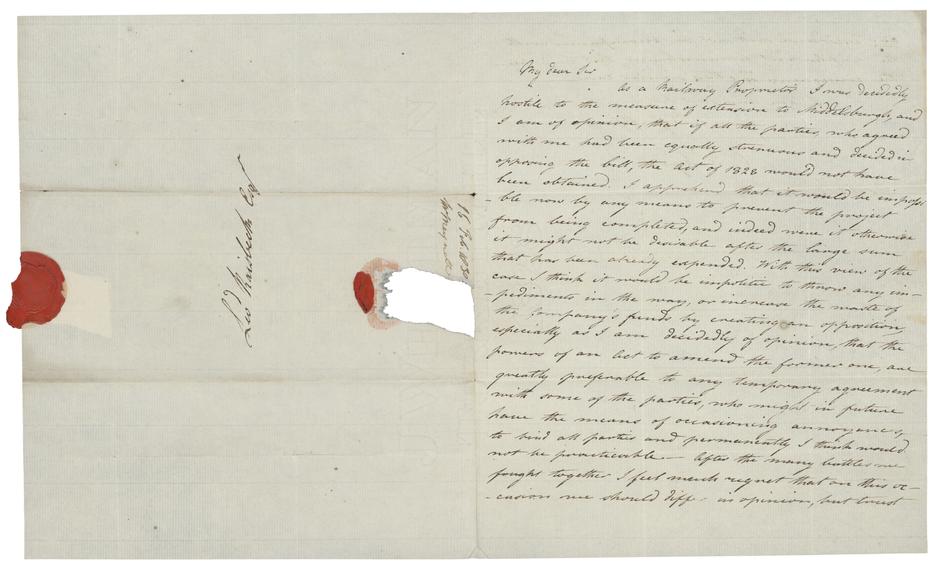 Leod Raisbeck Esqr
16 Feb
My dear Sir
As a Railway Proprietor I was decidedly
hostile to the measure of extension to Middlesburgh, and
I am of opinion, that if all the parties, who agreed
with me had been equally strenuous and decided in
opposing the bill, the Act of 1828 would not have
been obtained. I apprehend that it would be impossi
-ble now by any means to prevent the project
from being completed, and indeed were it otherwise
it might not be desirable after the large sum
that has been already expended. With this view of the
case I think it would be impolitic to throw any im-
-pediments in the way, or increase the waste of
the Company's funds by creating an opposition,
especially as I am decidedly of opinion, that the
powers of an Act to amend the former one, are
greatly preferable to any temporary agreement
with some of the parties, who might in future
have the means of occasioning annoyance,
to bind all parties and permanently I think would
not be practicable— After the many battles we
fought together I feel much regret that on this oc-
-casion we should differ in opinion, but trust